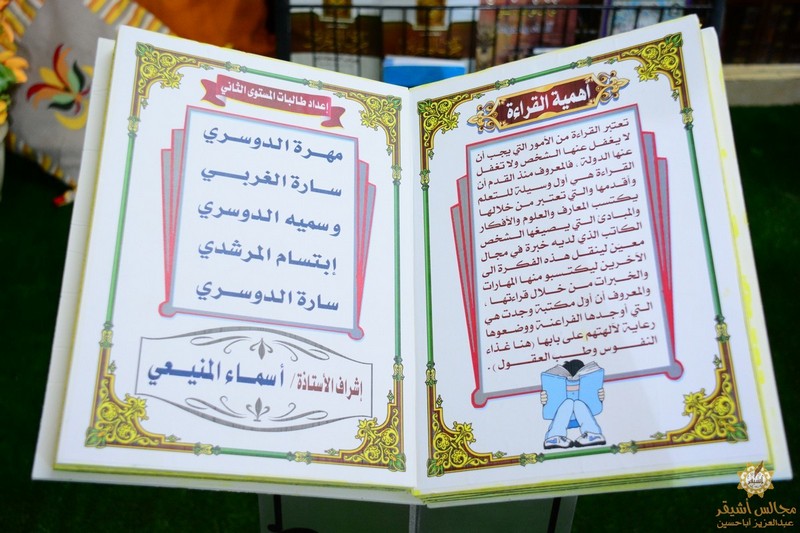 أهمية القراءة
تعتبر القراءة من الأمور التي يجب أن
لا يغفل عنها الشخص ولا تغفل
عنها الدولة ، فالمعروف منذ القدم أن
القراءة هي أول وسيلة للتعلم
وأقدمها والتي تعتبر من خلالها
يكتسب المعارف والعلوم والأفكار
والمبادئ التي يصيغها الشخص
الكاتب الذي لديه خبرة في مجال
معين لينقل هذه الفكرة الى
الآخرين ليكتسبو منها المهارات
والخبرات من خلال قراءتها ،
والمعروف أن أول مكتبة وجدت هي
التي أوجدها الفراعنة ووضعوها
رعاية لآلهتهم على بابها (هنا غذاء
النفوس وطب العقول ).
إعداد طالبات المستوى الثاني
مهرة الدوسري
سارة الغربي
وسميه الدوسري
إبتسام المرشدي
سارة الدوسري
إشراف الأستاذة / أسماء المنيعي
مجالس أشيقر
عبدالعزيز أباحسين